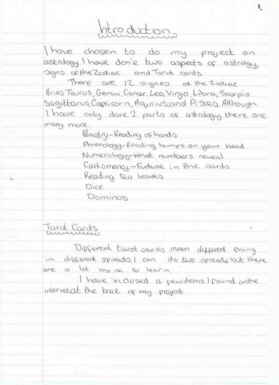 1
Introduction
I have chosen to do my project on
astrology I have don't two aspects of astrology
signs of the Zodiac and Tarot cards
There are 12 signes of the Zodiac
Aries Taurus, Gemini Cancer, Leo, Virgo Libra, Scorpio
Sagittarius, Capricorn, Aquarius and Pisces. Although
I have only done 2 parts of astrology there are
many more.
Reading of hands
Phrenology-Reading bumps on your head
Numerology-What numbers reveal
Cartomancy-Future in the cards
Reading tea leaves
Dice
Dominos
Tarot Cards
Different tarot cards mean different thing
in different spreads I can do two spreads but there
are a lot more to learn.
I have inclosed a I found on the
internet at the back of my project.